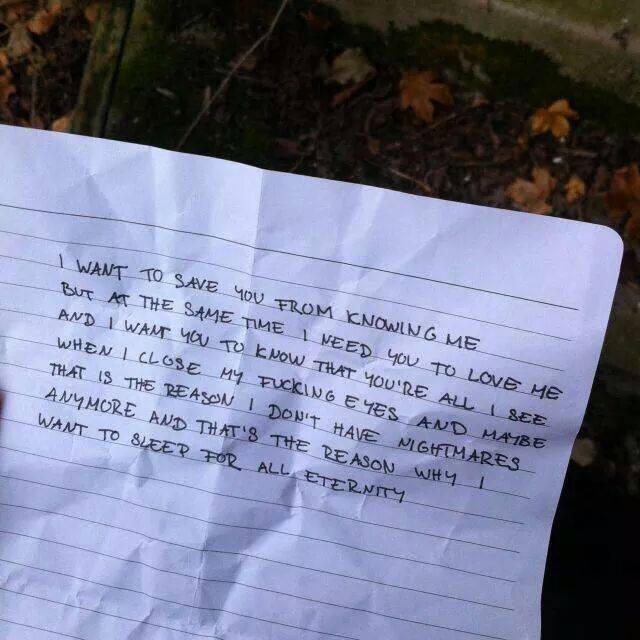 I WANT TO SAVE YOU FROM KNOWING ME
BUT AT THE SAME TIME I NEED YOU TO LOVE ME
AND I WANT YOU TO KNOW THAT YOU'RE ALL I SEE
WHEN I CLOSE MY FUCKING EYES AND MAYBE
THAT IS THE REASON I DON'T HAVE NIGHTMARES
ANYMORE AND THAT'S THE REASON WHY I
WANT TO SLEEP FOR ALL ETERNITY